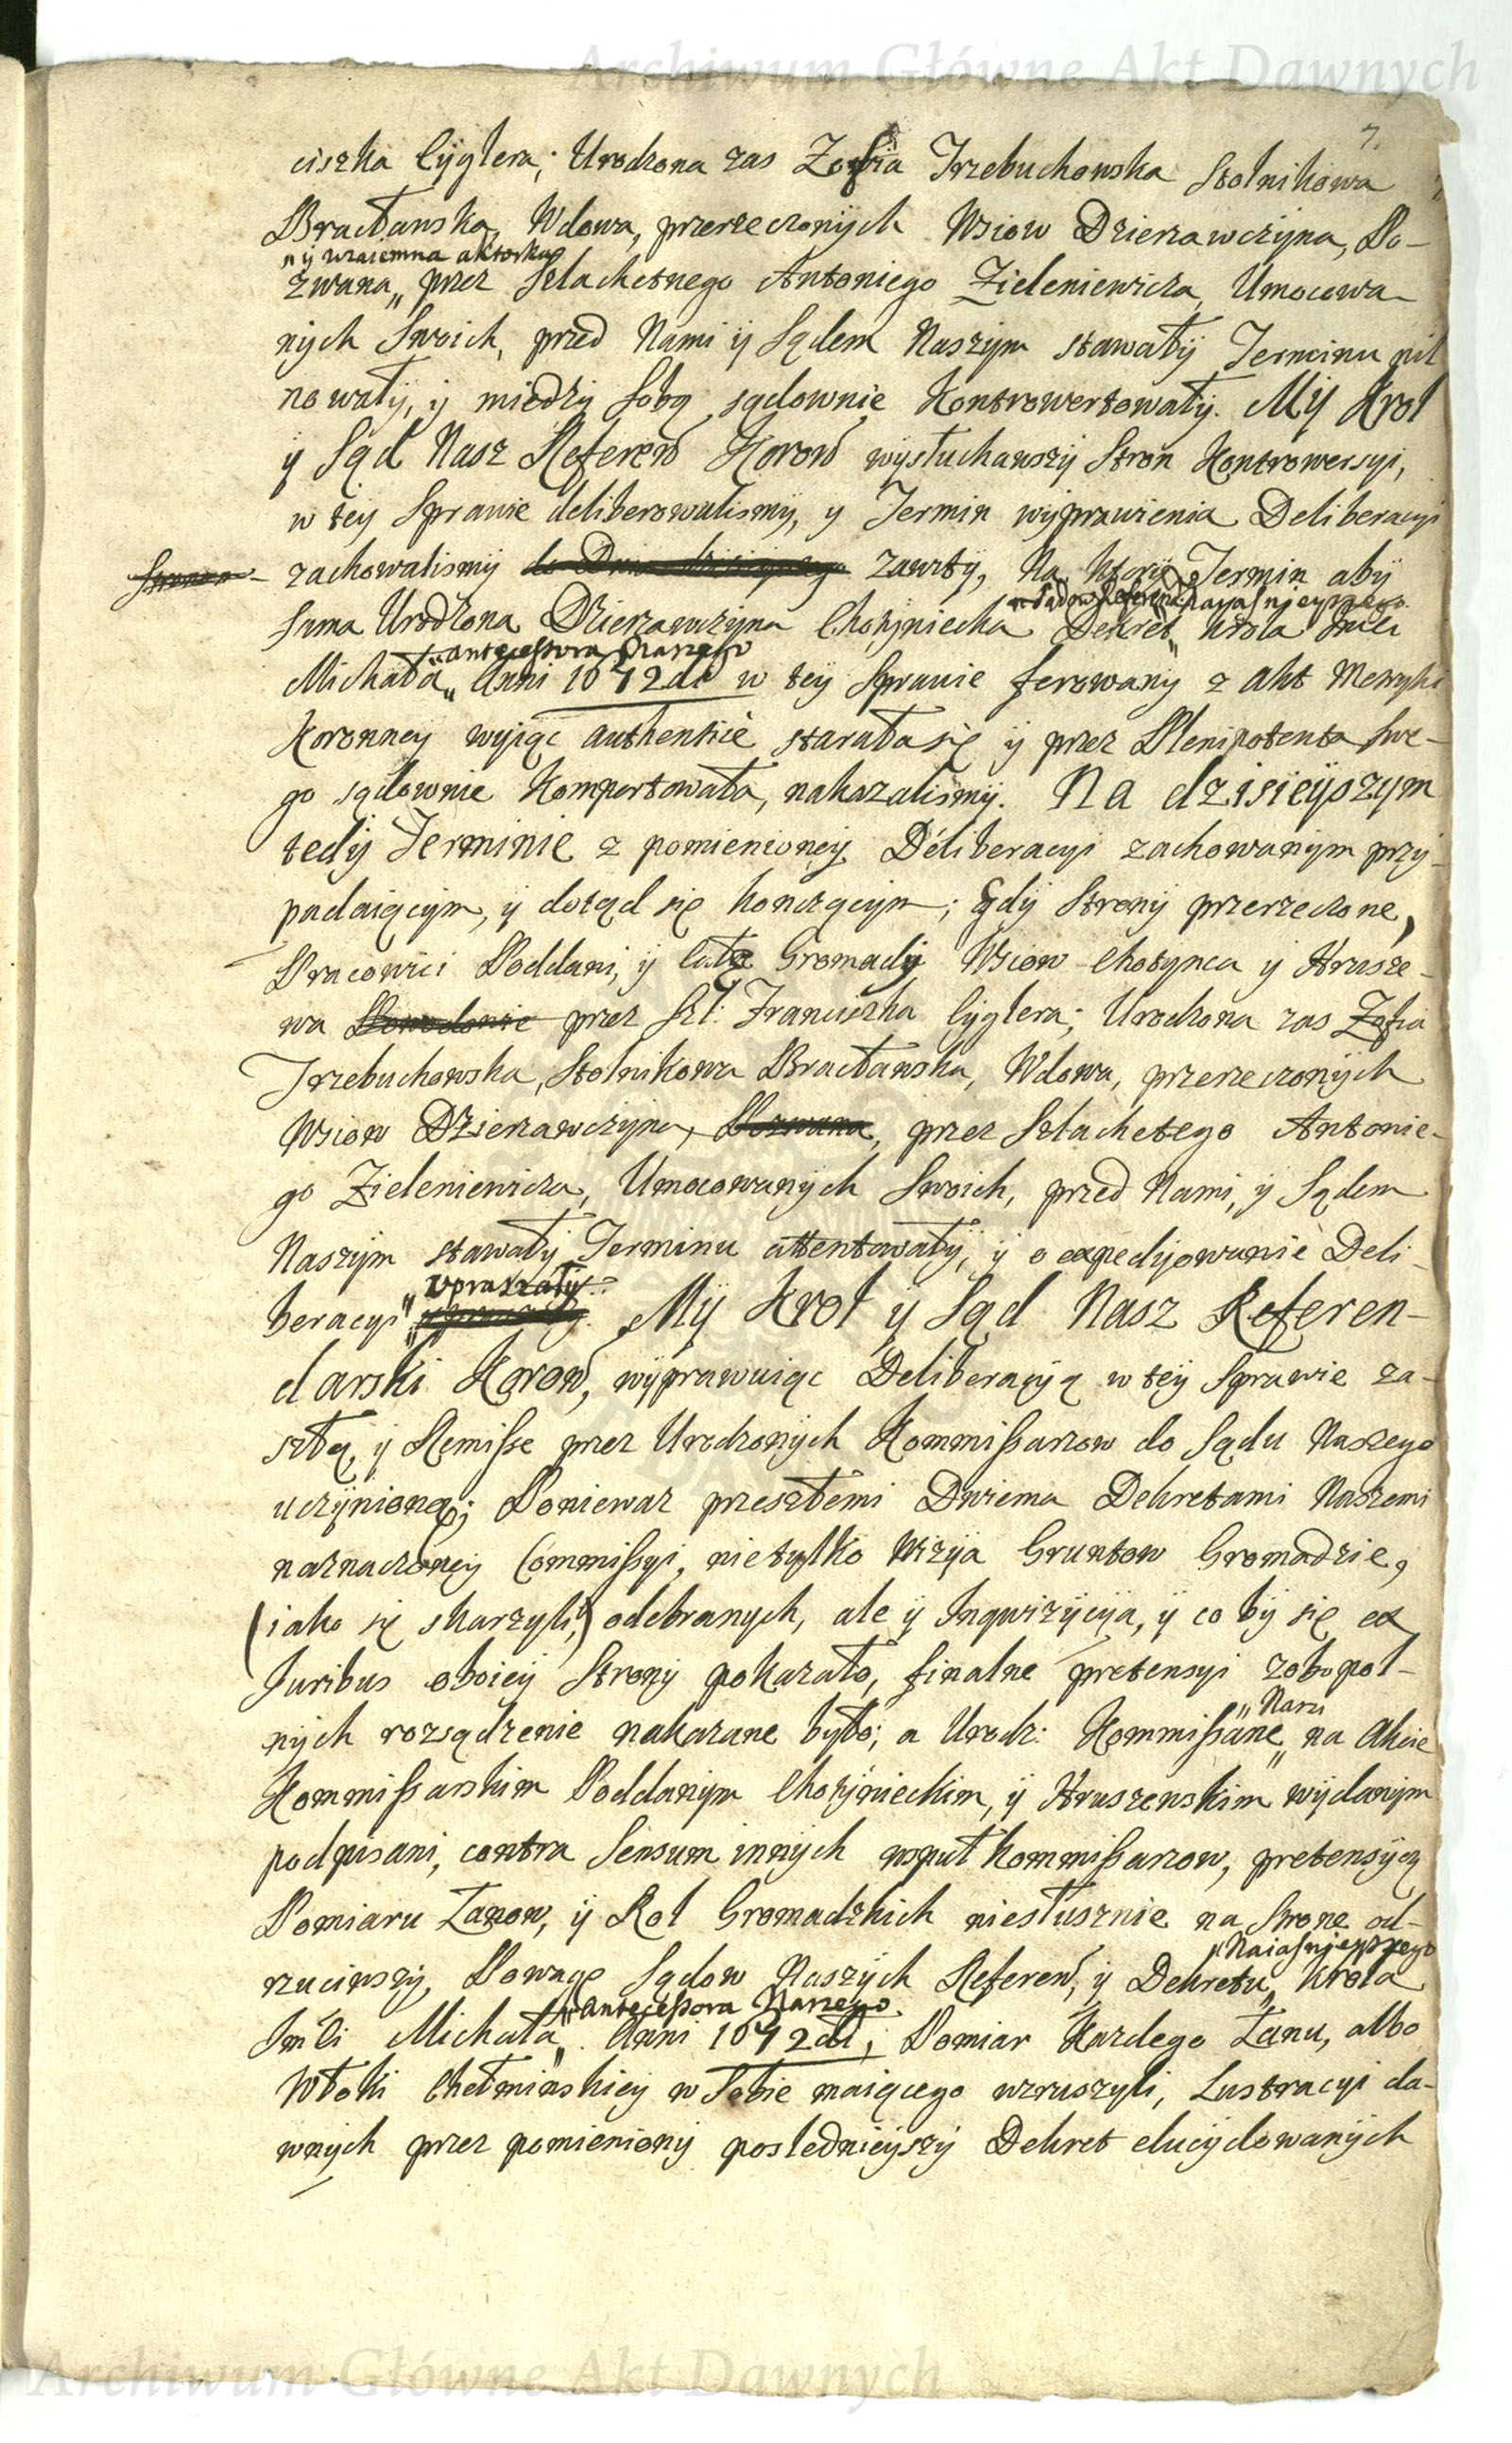 Archiwum Główne Akt Dawnych
7.
ciszka Cyglera; Urodzona zas Zofia Trzebuchowska Stolnikowa
Bracławska, Wdowa, przerzeczonych Wsiow Dzierzawczyna, Po-
"y wzaiemna aktorka
zwana„ przez Szlachetnego Antoniego Zieleniewicza, Umocowa-
nych Swoich, przed Nami y Sądem Naszym stawały Terminu pil
nowały, y miedzy sobą sądownie Kontrowertowały. My Krol
y Sąd Nasz Referen Koron wysłuchawszy Stron Kontrowersyi,
w tey Sprawie deliberowalismy, y Termin wyprawienia Deliberacyi
zachowalismy do Dnia dzisieyszego zawity, Na ktory Termin aby
w Sądow Referend: Nayiasnieyszego
sama Urodzona Dzierzawczyna Chotyniecka Dekret„ Krola Jmci
"antecessora Naszego
Michała„ Anni 1672di w tey Sprawie ferowany z Akt Metryki
Koronney wyiąc authenticè starała się y przez Plenipotenta swe-
go sądownie Komportowała, nakazalismy. Na dzisieyszym
tedy Terminie z pomienioney Deliberacyi zachowanym przy-
padaiącym, y dotąd się konczącym; Gdy Strony przerzeczone,
Pracowici Poddani, y Cała Gromady Wsiow Chotynca y Hrusze-
wa Powodowie przez Szl: Franciszka Cyglera; Urodzona zas Zofia
Trzebuchowska, Stolnikowa Bracławska, Wdowa, przerzeczonych
Wsiow Dzierzawczyna, Pozwana, przez Szlachetego Antonie-
go Zieleniewicza, Umocowanych Swoich, przed Nami, y Sądem
Naszym stawały Terminu attentowały, y o expedyowanie Deli-
"upraszały:
beracyi" My Krol y Sąd Nasz Referen-
darski Koron, wyprawuiąc Deliberacyą w tey Sprawie za-
szłą, y Remisse przez Urodzonych Kommissarzow do Sądu Naszego
uczynioną; Poniewaz przeszłemi Dwiema Dekretami Naszemi
naznaczoney Commissyi, nietylko Wizya Gruntow Gromadzie,
(iako się skarzyli,) odebranych, ale y Inqwizycya, y co by się ex
Juribus oboiey Strony pokazało, finalne pretensyi zobopol-
"Nasi
nych rozsądzenie nakazane było; a Urodz: Kommissarze„ na Akcie
Kommissarskim Poddanym Chotynieckim, y Hruszewskim wydanym
podpisani, contra Sensum innych wspuł Kommissarzow, pretensyą
Pomiaru Łanow, y Rol Gromadzkich niesłusznie na Strone od-
"Naiasnieyszego
rzuciwszy, Powagę Sądow Naszych Referen, y Dekretu„ Krola
"antecessora Naszego
Jmci Michała„ Anni 1672di, Pomiar Kazdego Łanu, albo
Włoki Chełminskiey w Sobie maiącego wzruszyli, Lustracyi da-
wnych przez pomieniony poslednieyszy Dekret elucydowanych
Archiwum Główne Akt Dawnych